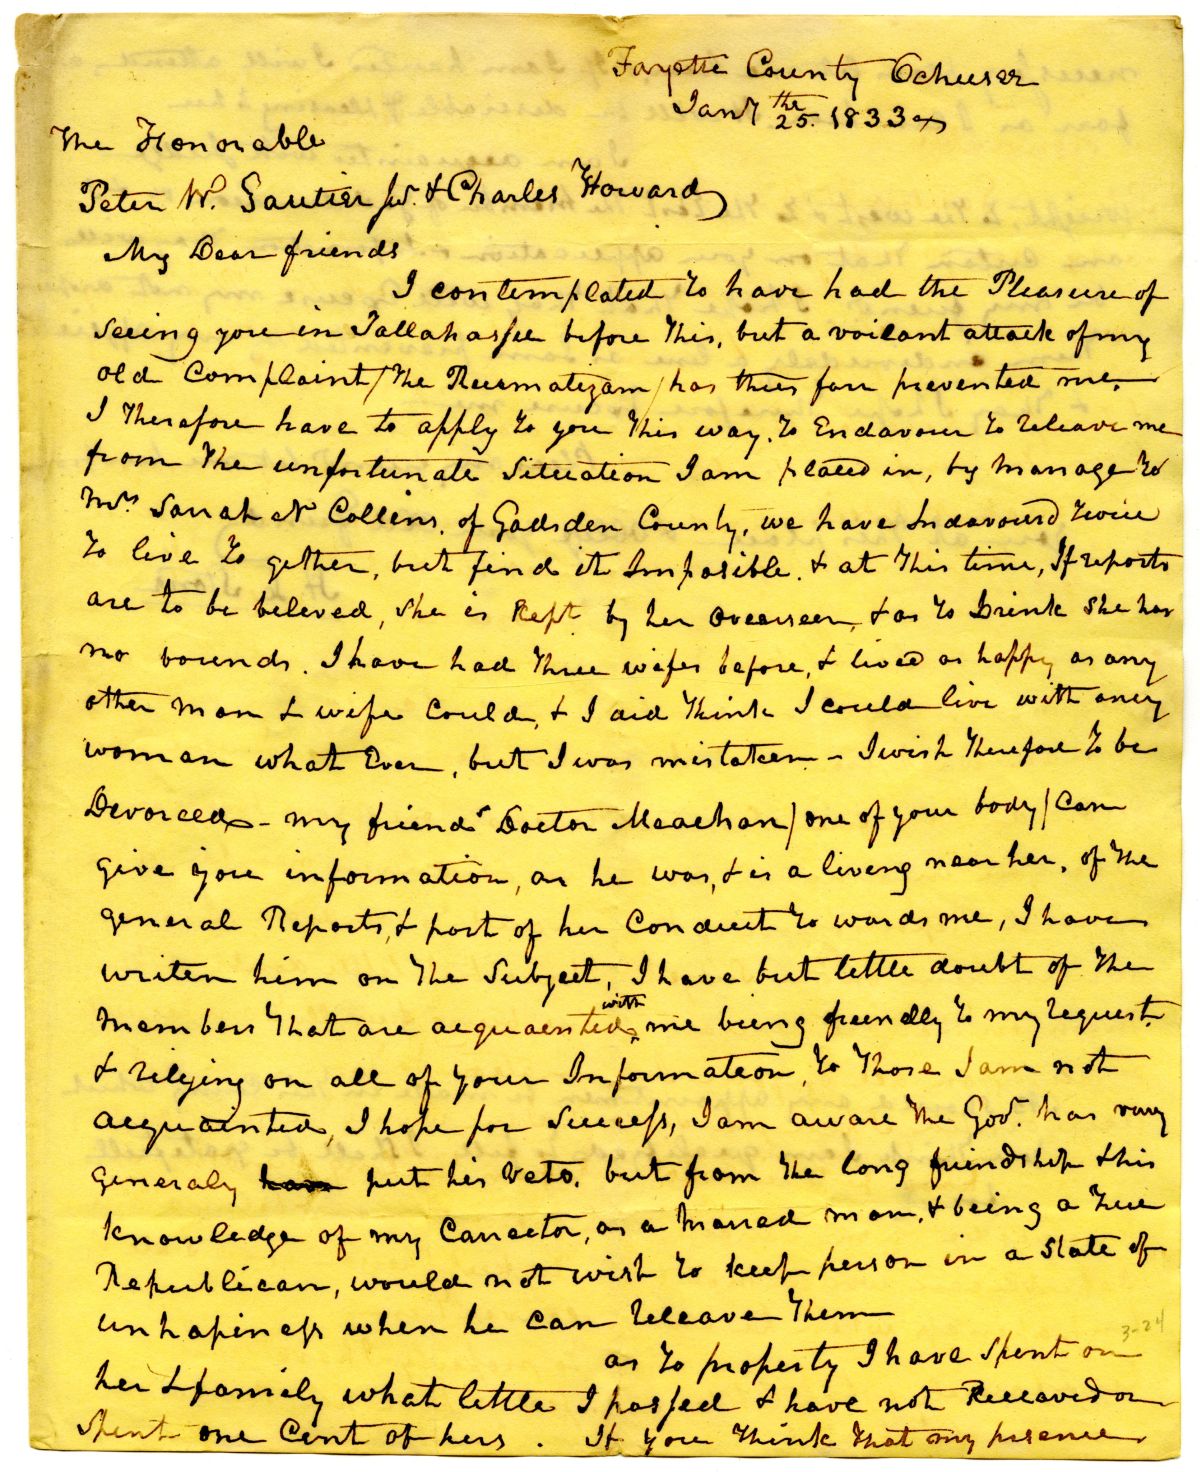 Fayette County Ochuser
Jany the 25. 1833
The Honorable
Peter W. Gautier Jur. & Charles Howard
My Dear friends
I contemplated to have had the Pleasure of
seeing you in Tallahassee before this, but a voilant attack of my
old Complaint / the Reumatizam / has thus far prevented me.
I therefore have to apply to you this way. to Endavour to releave me
from the unfortunate Situation I am placed in, by marrage to
Mrs Sarrah N Collins, of Gadsden County, we have Indavourd twice
to live to gether, but find it Imposible. & at this time, If reports
are to be beleved, she is Kept by her overseer, & as to Drink she has
no bounds. I have had three wifes before, & lived as happy as any
other man & wife Could, & I did think I could live with any
woman what Ever, but I was mistaken - I wish therefore to be
Devorced - my friend Doctor Meachan / one of your body / Can
give you information, as he was, & is a liveng near her, of the
general Reports, & part of her Conduct to wards me, I have
writen him on the Subject, I have but lettle doubt of the
members that are acquainted with me being freendly to my request.
& relying on all of your Information, to those I am not
acquainted, I hope for Success, I am aware the Govr. has vary
generaly have put his Veto. but from the long friendship & his
knowledge of my Carrector, as a marred man, & being a true
Republican, would not wish to keep person in a State of
unhapiness when he Can releave them
3-24
as to property I have spent on
her & family what lettle I possed & have not Receaved or
spent one Cent of hers. If you think that my presence